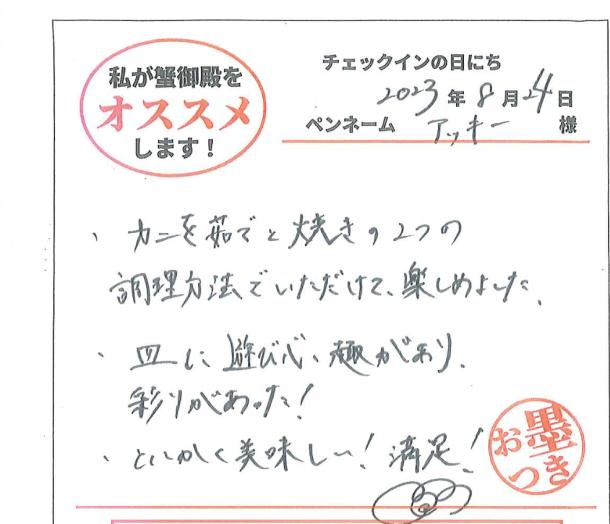 私が蟹御殿を
オススメ
します！
チェックインの日にち
2023年8月24日
ペンネーム アッキー 様
・カニを茹でと焼きの2つの
調理方法でいただけて、楽しめました。
・皿に遊び心、趣があり、
彩りがあった！
・とにかく美味しい！満足！
お墨つき